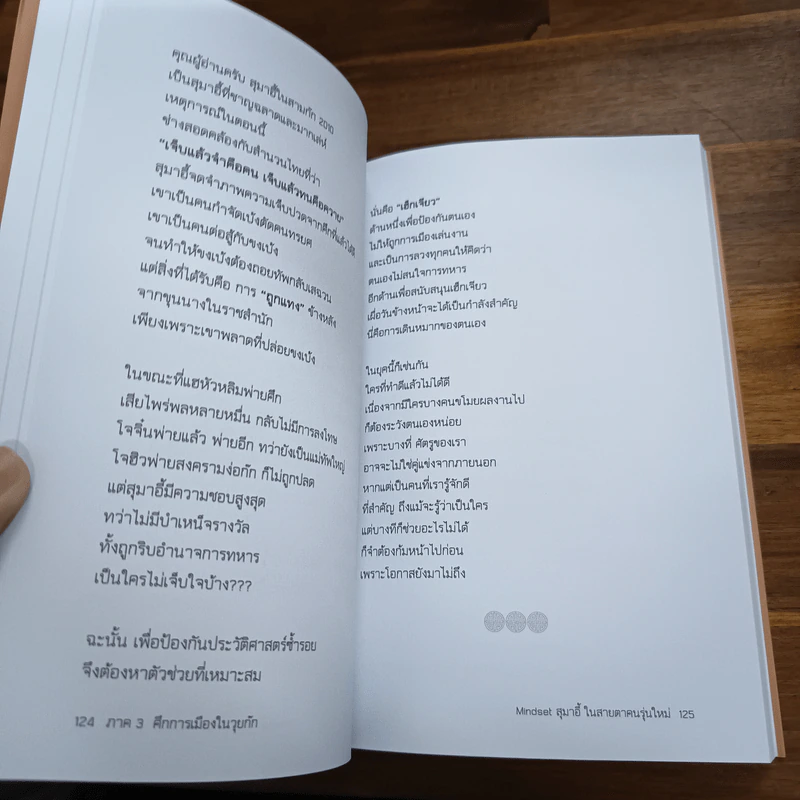 คุณผู้อ่านครับ สุมาอี้ในสามก๊ก 2010
เป็นสุมาอี้ที่ชาญฉลาดและมากเล่ห์
เหตุการณ์ในตอนนี้
ช่างสอดคล้องกับสำนวนไทยที่ว่า
"เจ็บแล้วจำคือคน เจ็บแล้วทนคือควาย"
สุมาอี้จดจำภาพความเจ็บปวดจากศึกที่แล้วได้ดี
เขาเป็นคนกำจัดเบ้งตัดคนทรยศ
เขาเป็นคนต่อสู้กับขงเบ้ง
จนทำให้ขงเบ้งต้องถอยทัพกลับเสฉวน
แต่สิ่งที่ได้รับคือ การ "ถูกแทง" ข้างหลัง
จากขุนนางในราชสำนัก
เพียงเพราะเขาพลาดที่ปล่อยขงเบ้ง
ในขณะที่แฮหัวหลิมพ่ายศึก
เสียไพร่พลหลายหมื่น กลับไม่มีการลงโทษ
โจจิ๋นพ่ายแล้ว พ่ายอีก ทว่ายังเป็นแม่ทัพใหญ่
โจฮิวพ่ายสงครามง่อก๊ก ก็ไม่ถูกปลด
แต่สุมาอี้มีความชอบสูงสุด
ทว่าไม่มีบำเหน็จรางวัล
ทั้งถูกริบอำนาจการทหาร
เป็นใครไม่เจ็บใจบ้าง???
ฉะนั้น เพื่อป้องกันประวัติศาสตร์ซ้ำรอย
จึงต้องหาตัวช่วยที่เหมาะสม
124 ภาค 3 ศึกการเมืองในวุยก๊ก
นั่นคือ "เฮ็กเจียว"
ด้านหนึ่งเพื่อป้องกันตนเอง
ไม่ให้ถูกการเมืองเล่นงาน
และเป็นการลวงทุกคนให้คิดว่า
ตนเองไม่สนใจการทหาร
อีกด้านเพื่อสนับสนุนเฮ็กเจียว
เผื่อวันข้างหน้าจะได้เป็นกำลังสำคัญ
นี่คือการเดินหมากของตนเอง
ในยุคนี้ก็เช่นกัน
ใครที่ทำดีแล้วไม่ได้ดี
เนื่องจากมีใครบางคนขโมยผลงานไป
ก็ต้องระวังตนเองหน่อย
เพราะบางที ศัตรูของเรา
อาจจะไม่ใช่คู่แข่งจากภายนอก
หากแต่เป็นคนที่เรารู้จักดี
ที่สำคัญ ถึงแม้จะรู้ว่าเป็นใคร
แต่บางทีก็ช่วยอะไรไม่ได้
ก็จำต้องก้มหน้าไปก่อน
เพราะโอกาสยังมาไม่ถึง
Mindset สุมาอี้ ในสายตาคนรุ่นใหม่ 125